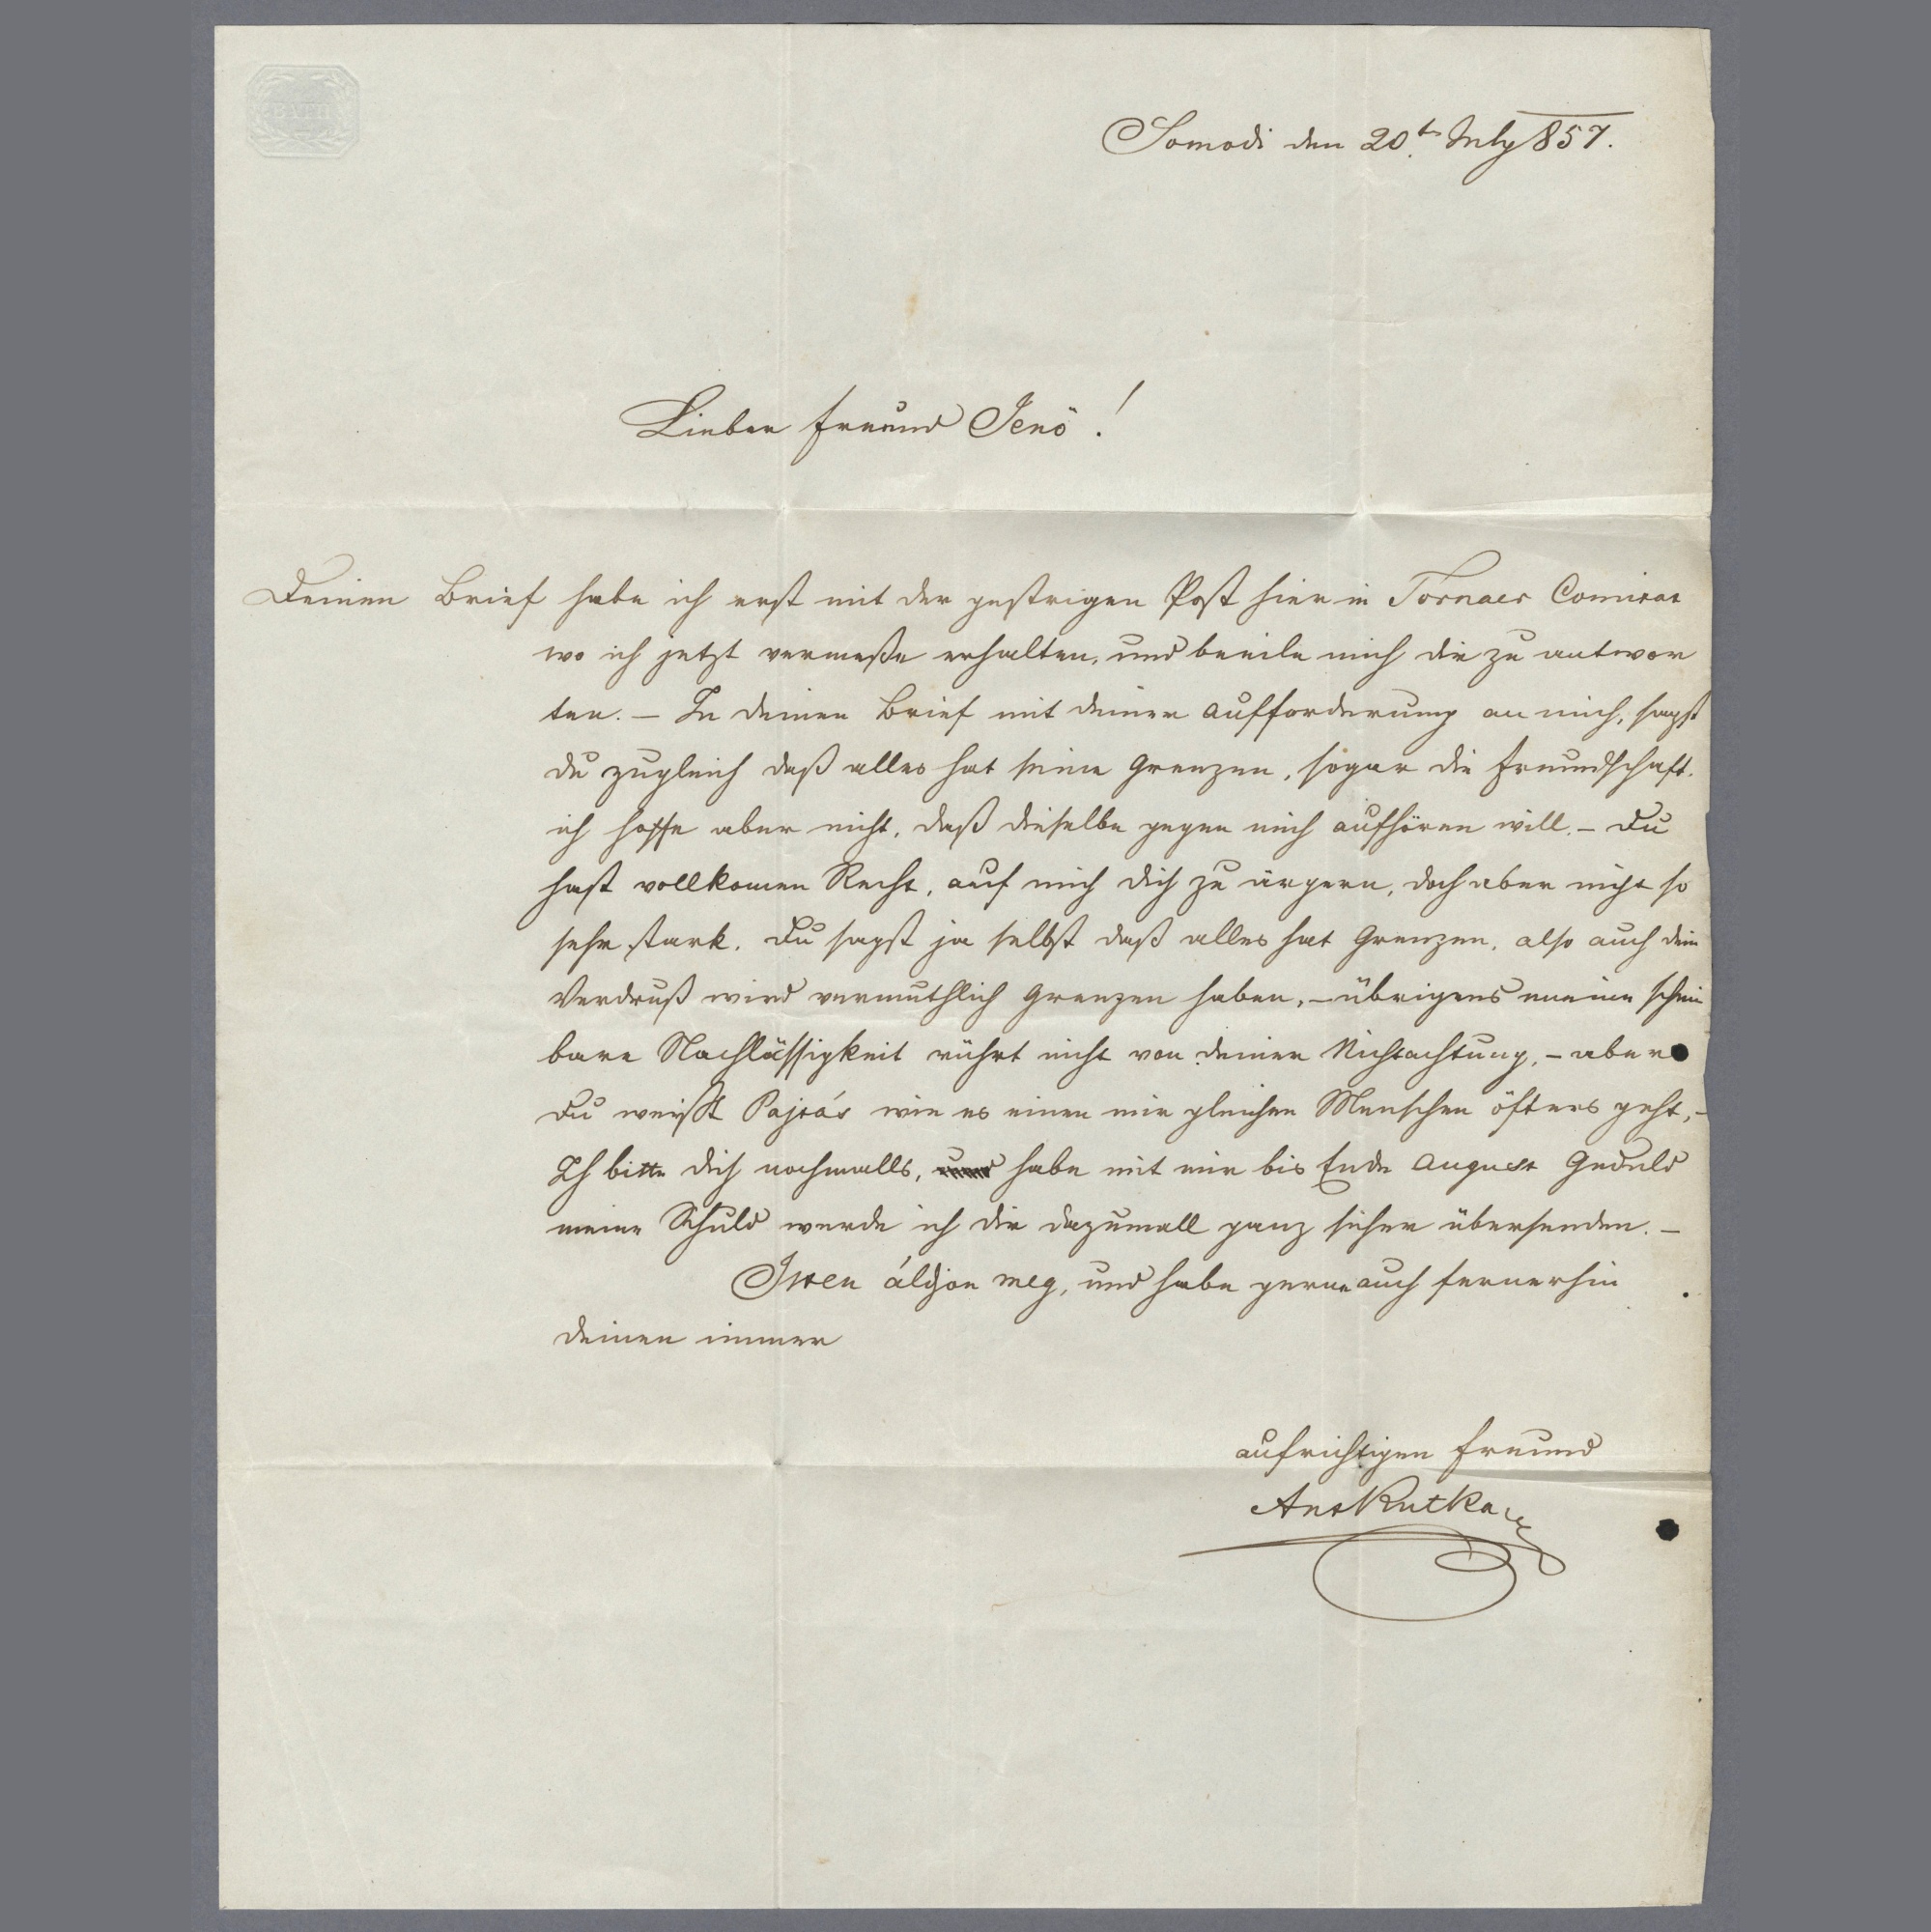 Somodi den 20t. July 857.
Lieber Freund Jenö!
Deinen Brief habe ich erst mit der gestrigen Post hier in Tornaer Comitat
wo ich jetzt vermeße erhalten, und beeile mich dir zu antwor
ten. – In deinen Brief mit deiner Aufforderung an mich, sagst
du zugleich daß alles hat seine Grenzen, sogar die Freundschaft.
ich hoffe aber nicht, daß dieselbe gegen mich aufhören will. – Du
hast vollkomen Recht, auf mich dich zu ärgern, doch aber nicht so
sehr stark. Du sagst ja selbst daß alles hat Grenzen, also auch dein
Verdruß wird vermuthlich Grenzen haben, – übrigens meine schein
bare Nachlässigkeit rührt nicht von deiner Nichtachtung, – aber
Du weißt Pajtás wie es einen mir gleichen Menschen öfters geht, –
Ich bitte dich nochmalls, und habe mit mir bis Ende August Geduld
meine Schuld werde ich dir dazumall ganz sicher übersenden. –
Isten áldjon meg, und habe gerne auch fernerhin
deinen immer
aufrichtigen Freund
Ant Rutkay